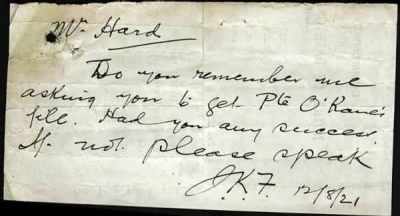 Mr Hard
Do you remember me
asking you to get Pte O'Kane's
file. Had you any success
If not please speak
J.K.F. 12/8/21